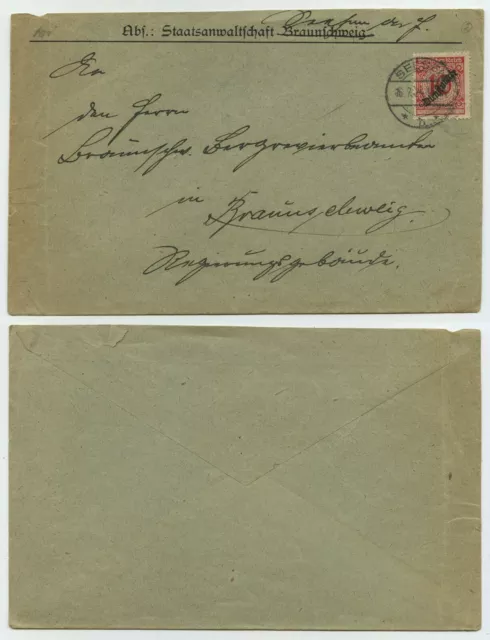 Seesen
Abs.: Staatsanwaltschaft Braunschweig
SEESEN
An
den Herrn
Braunschw. Bergrevierbeamten
in
Braunschweig.
Regierungsgebäude.